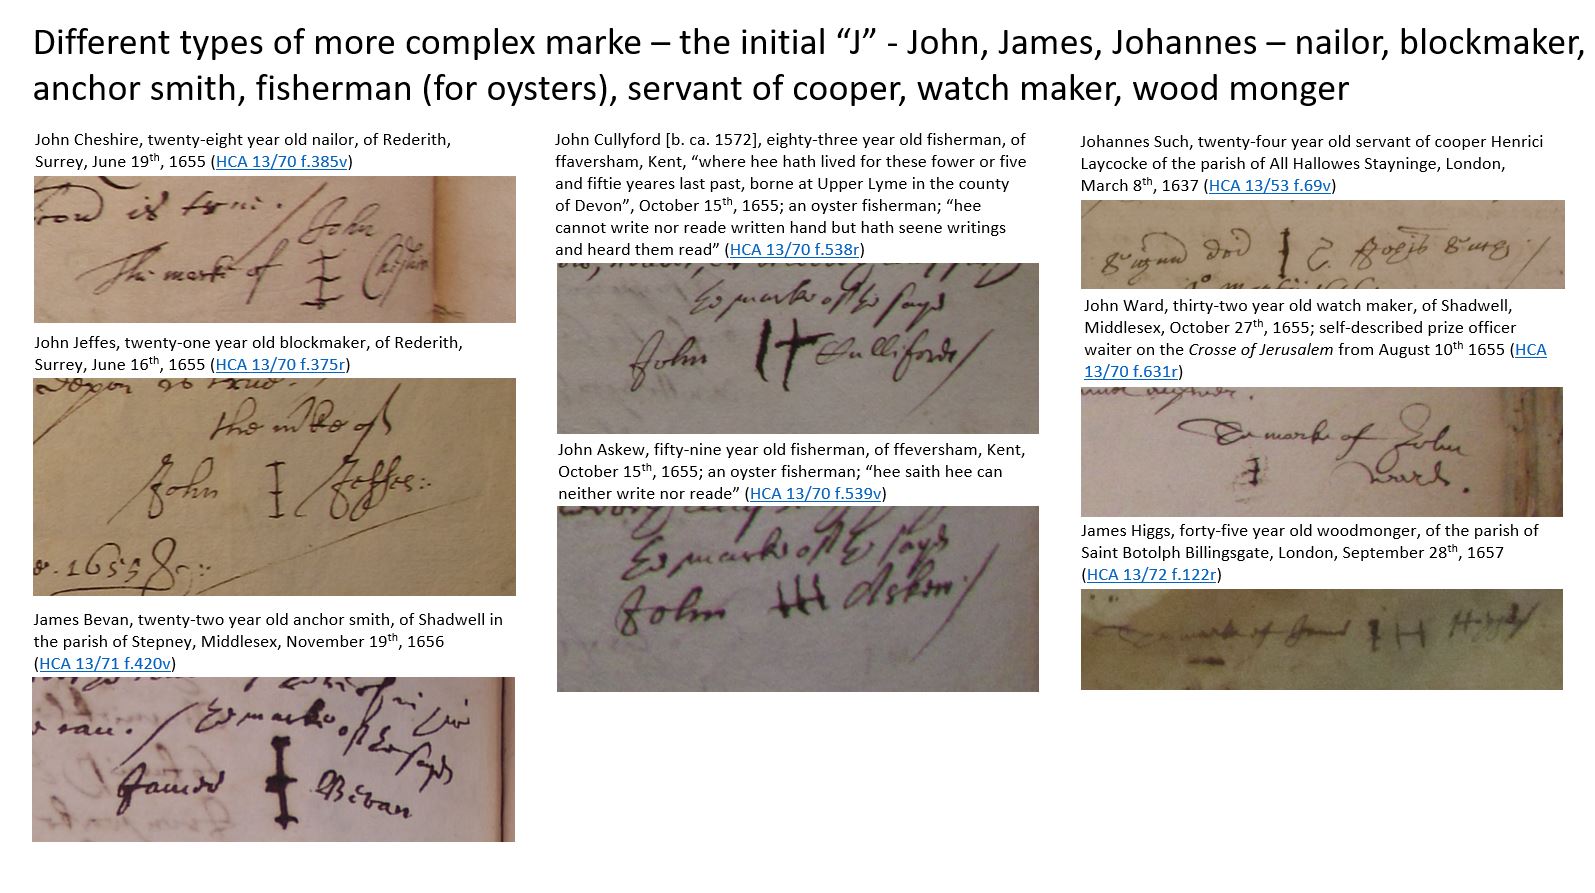 Different types of more complex marke – the initial “J” - John, James, Johannes – nailor, blockmaker,
anchor smith, fisherman (for oysters), servant of cooper, watch maker, wood monger
John Cheshire, twenty-eight year old nailor, of Rederith,
Surrey, June 19th, 1655 (HCA 13/70 f.385v)
is true.
The marke of John Cheshire
John Jeffes, twenty-one year old blockmaker, of Rederith,
Surrey, June 16th, 1655 (HCA 13/70 f.375r)
the mke of
John Jeffes:
1655
James Bevan, twenty-two year old anchor smith, of Shadwell in
the parish of Stepney, Middlesex, November 19th, 1656
(HCA 13/71 f.420v)
marke
of the sayd
James Bevan
John Cullyford [b. ca. 1572], eighty-three year old fisherman, of
ffaversham, Kent, “where hee hath lived for these fower or five
and fiftie yeares last past, borne at Upper Lyme in the county
of Devon”, October 15th, 1655; an oyster fisherman; “hee
cannot write nor reade written hand but hath seene writings
and heard them read” (HCA 13/70 f.538r)
marke of the sayd
John Culliforde
John Askew, fifty-nine year old fisherman, of ffeversham, Kent,
October 15th, 1655; an oyster fisherman; “hee saith hee can
neither write nor reade” (HCA 13/70 f.539v)
marke of the sayd
John Askew
Johannes Such, twenty-four year old servant of cooper Henrici
Laycocke of the parish of All Hallowes Stayninge, London,
March 8th, 1637 (HCA 13/53 f.69v)
Signum
John Ward, thirty-two year old watch maker, of Shadwell,
Middlesex, October 27th, 1655; self-described prize officer
waiter on the Crosse of Jerusalem from August 10th 1655 (HCA
13/70 f.631r)
marke of John
Ward.
James Higgs, forty-five year old woodmonger, of the parish of
Saint Botolph Billingsgate, London, September 28th, 1657
(HCA 13/72 f.122r)
marke of James IH Higgs